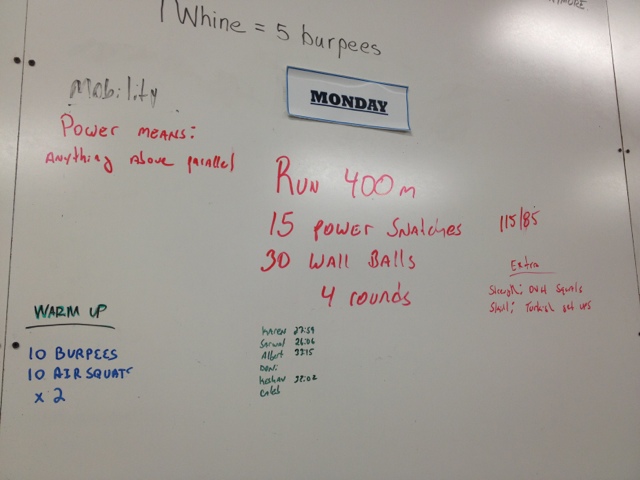 1 Whine = 5 burpees
Mobility
MONDAY
Power means:
Anything above parallel
Run 400m
15 power snatches 115/85
30 wall balls
4 rounds
Extra
Strength: OVH Squats
Skill: Turkish get ups
WARM UP
10 BURPEES
10 AIR SQUATS
x 2
Karen 27:59
Albert
Caleb